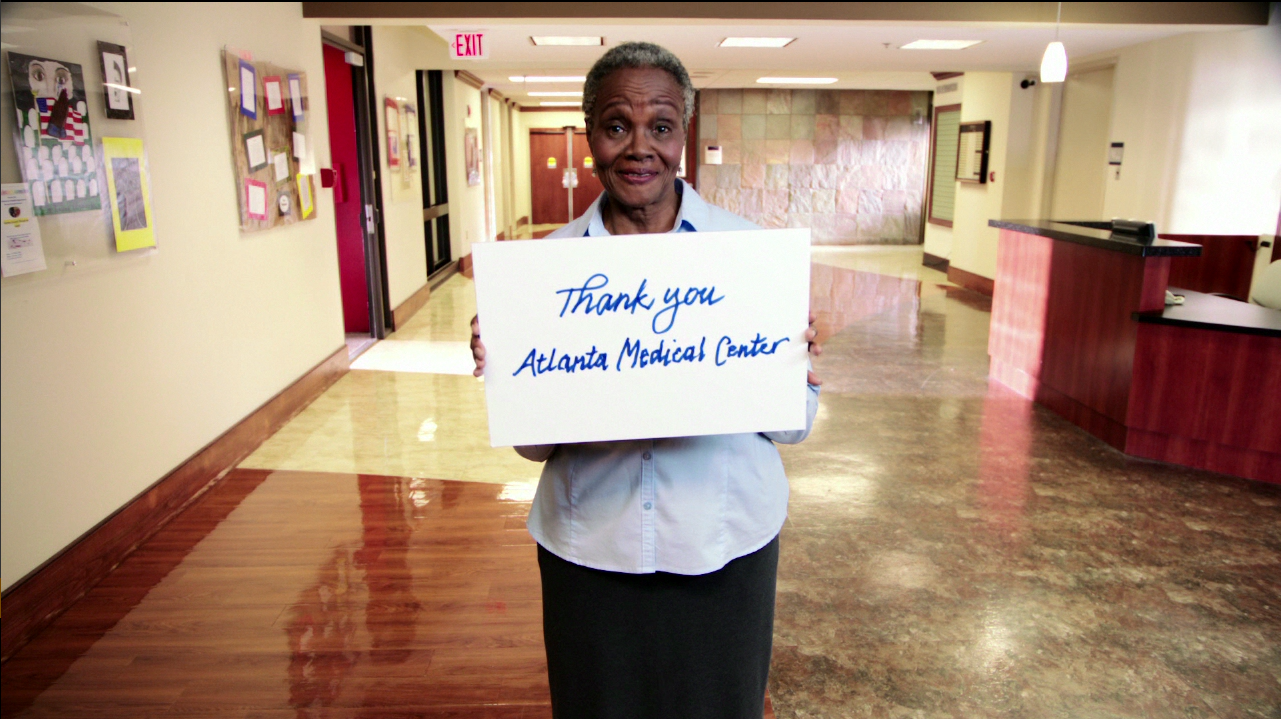 EXIT
Thank you
Atlanta Medical Center